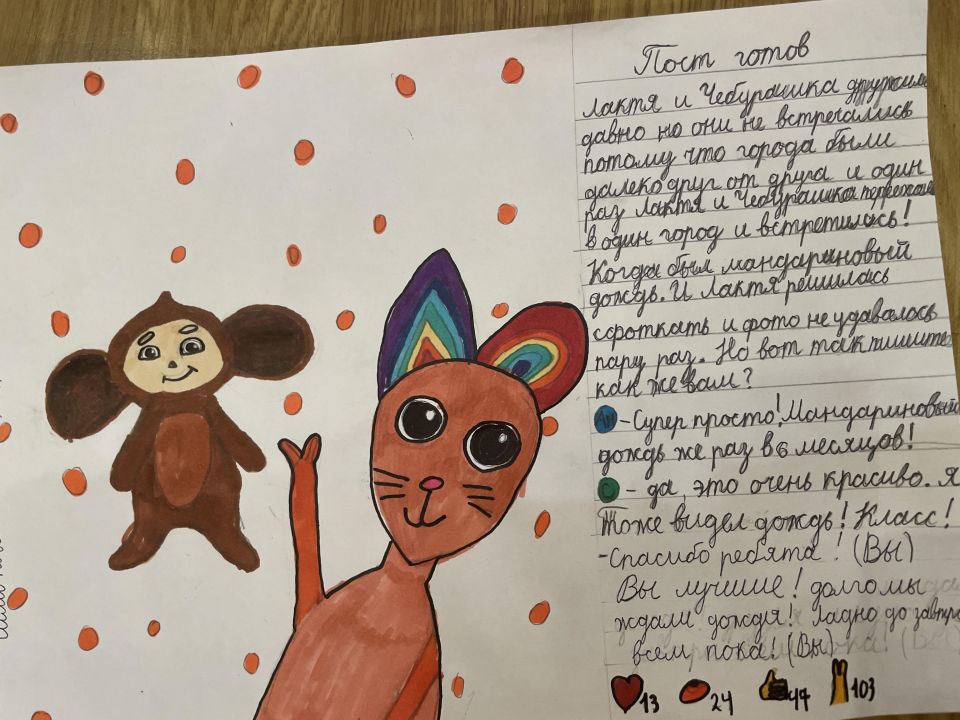 Пост готов
Лактя и Чебурашка дружили
давно но они не встречались
потому что города были
далеко друг от друга и один
раз Лактя и Чебурашка переехали
в один город и встретились!
Когда был мандариновый
дождь. И Лактя решилась
сфоткать и фото не удавалось
пару раз. Но вот так пишите
как же вам?
-Супер просто! Мандариновый
дождь же раз в 6 месяцов!
С - да, это очень красиво. Я
тоже видел дождь! Класс!
-Спасибо ребята! (Вы)
Вы лучшие! долго мы
ждали дождя! Ладно до завтра
всем пока! (Вы)
13 24 44 103